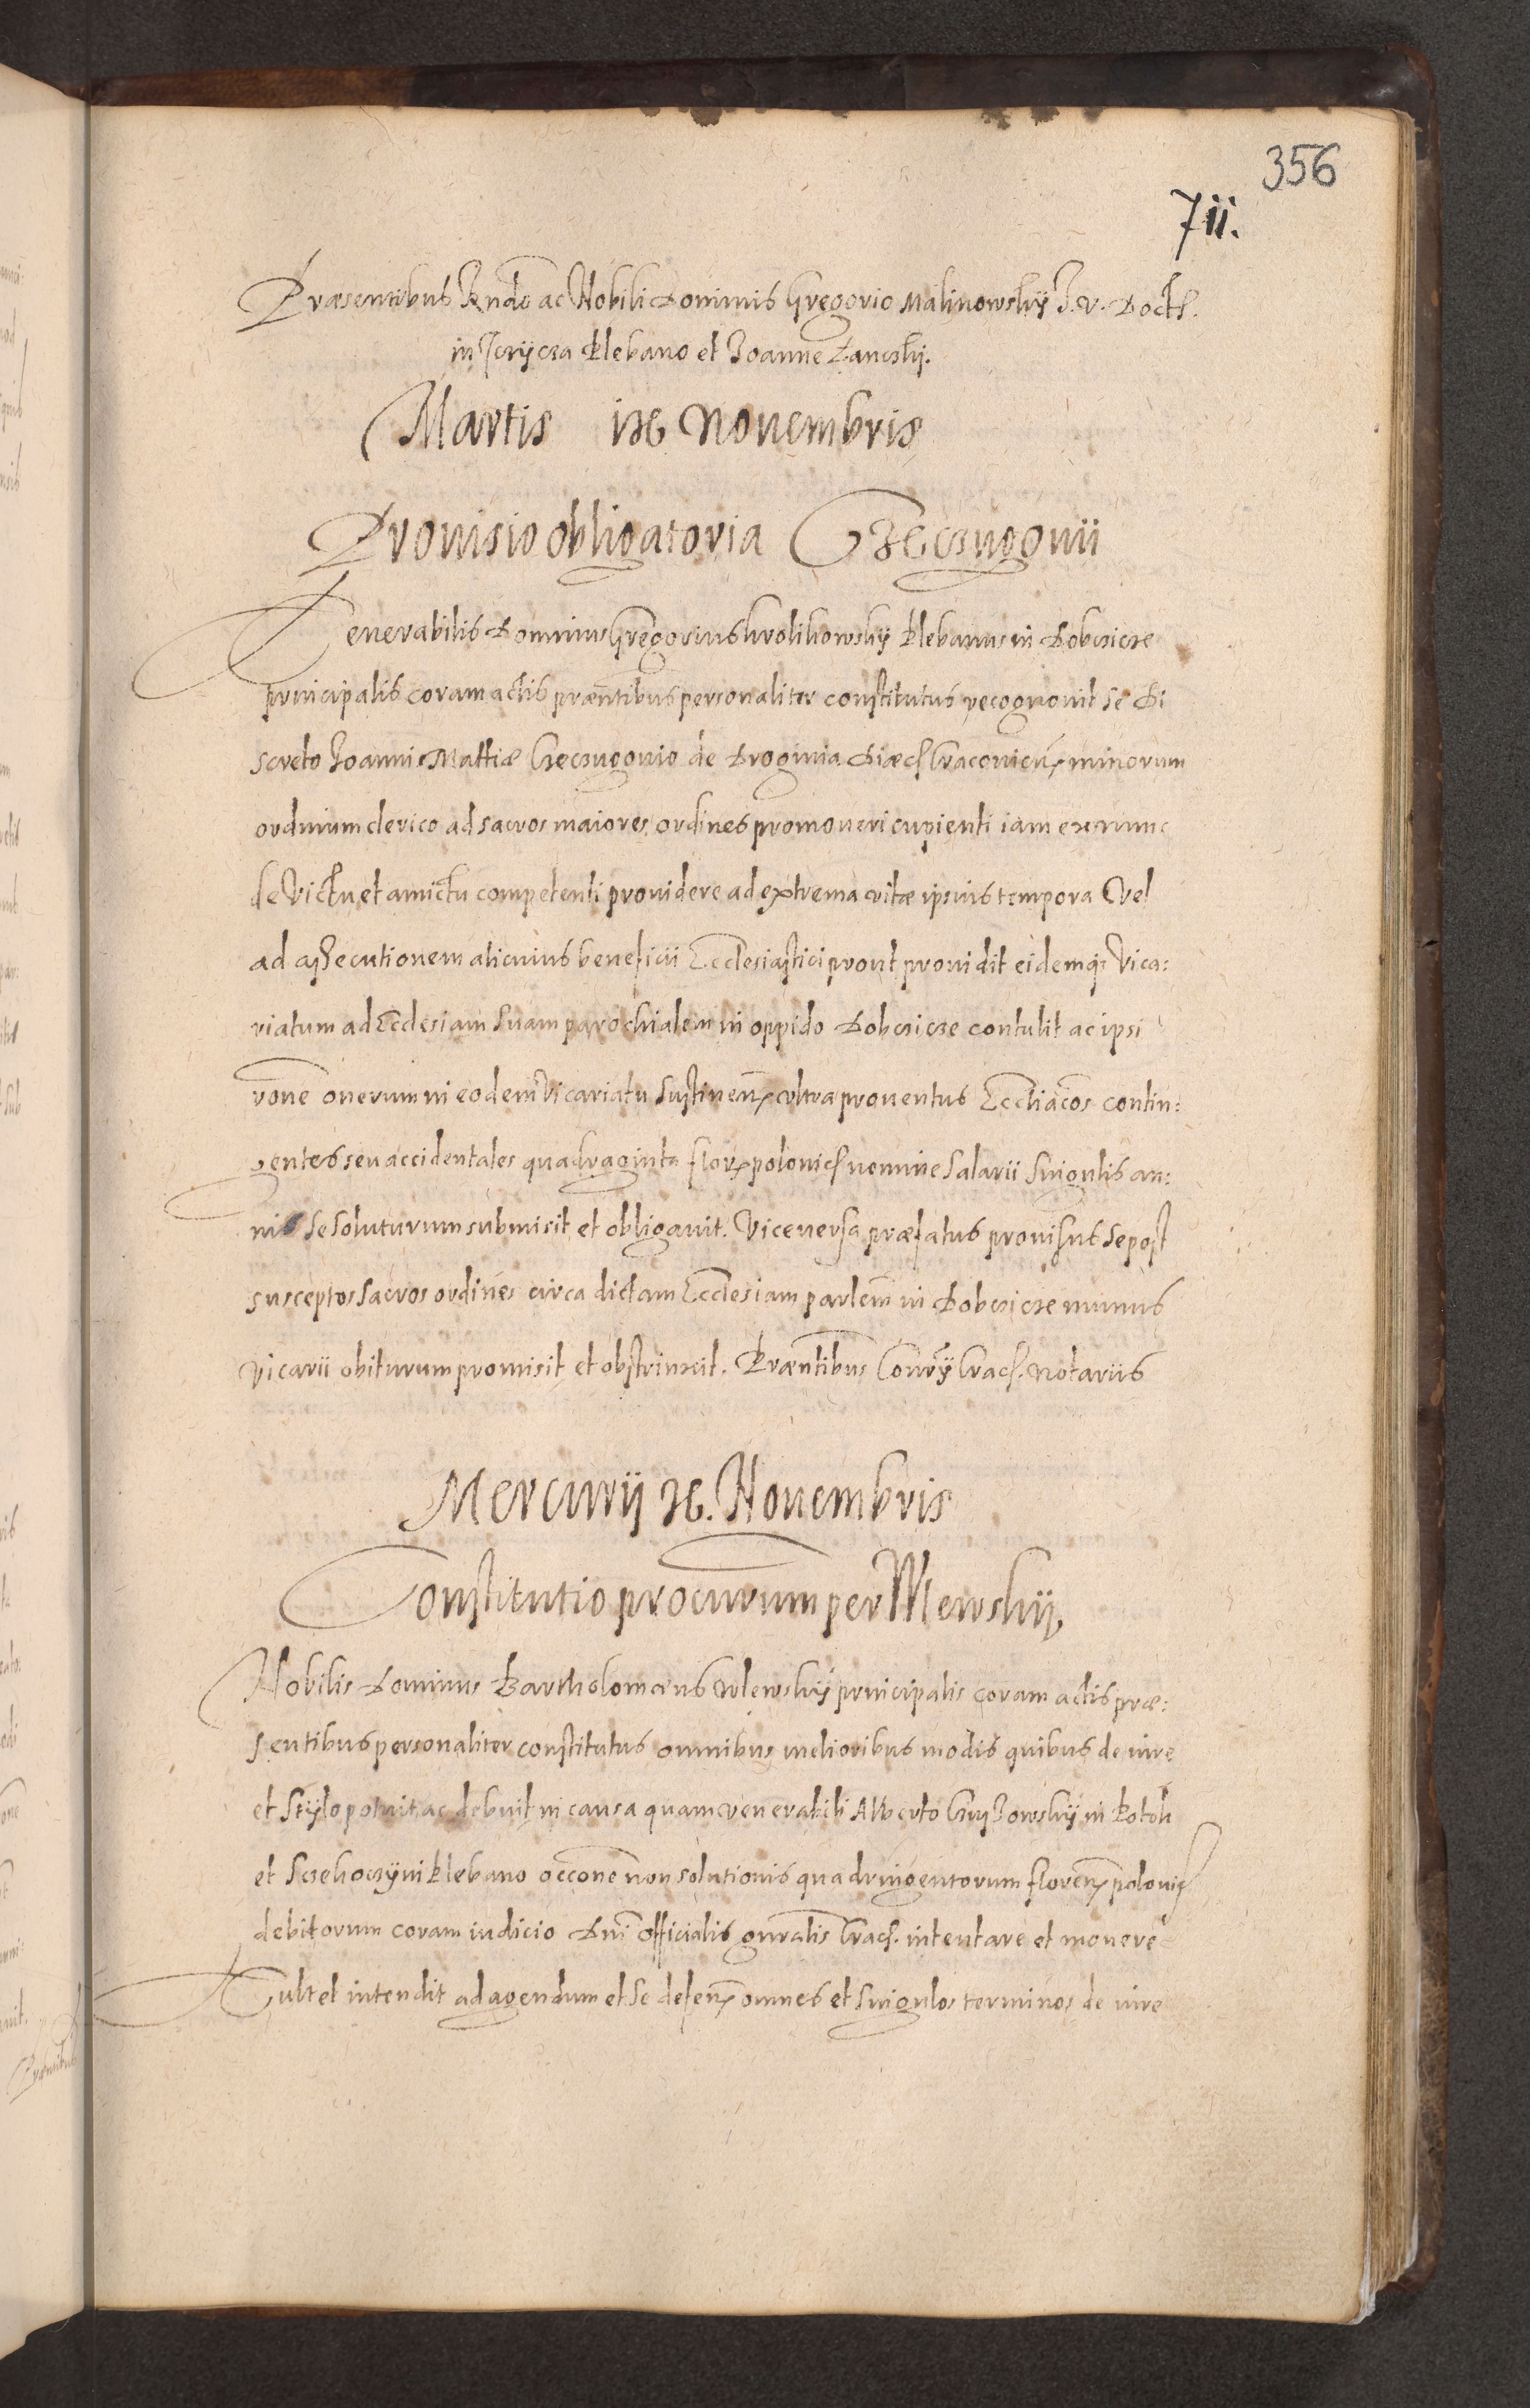 356
711.
Præsentibus Rndo ac Nobili Dominis Gregorio Malinowskÿ J. V. Doct.
in Plebano et Joanne
Martis Nouembris
Prouisio obligatoria Grzeczugonii
Venerabilis Dominus Gregorius Krolikowskÿ Plebanus in Dobczicze
principalis coram actis præntibus personaliter constitutus recognouit se Di
screto Joannis Mattiæ Grzeczugonio de Droginia Diæc Cracouien minorum
ordinum clerico ad sacros maiores ordines promoueri cupienti iam ex nunc
de Victu et amictu competenti prouidere ad extrema vitæ ipsius tempora Vel
ad assecutionem alicuius beneficii Ecclesiastici prout prouidit eidemq; Vica:
riatum ad Ecclesiam suam parochialem in oppido Dobczicze contulit ac ipsi
rone onerum in eodem Vicariatu sustinen vltra prouentus Eccliacos contin:
gentes seu accidentales quadraginta flor polonic nomine salarii singulis an:
nis se soluturum submisit et obligauit. Viceuersa præfatus prouisus se post
susceptos sacros ordines circa dictam Ecclesiam parlem in Dobczicze munus
vicarii obiturum promisit et obstrinxit. Præntibus Conrÿ Crac. Notariis
Mercurij 26. Nouembris
Constitutio procurum per Mlewskij
Nobilis Dominus Bartholomæus Mlewskÿ principalis coram actis præ:
sentibus personaliter constitutus omnibus melioribus modis quibus de iure
et stÿlo potuit ac debuit in causa quam venerabili Alberto in Potok
et Plebano occone non solutionis quadringentorum floren polonic
debitorum coram iudicio Dni officialis gnralis Crac. intentare et mouere
Vult et intendit ad agendum et se defen omnes et singulos terminos de iure